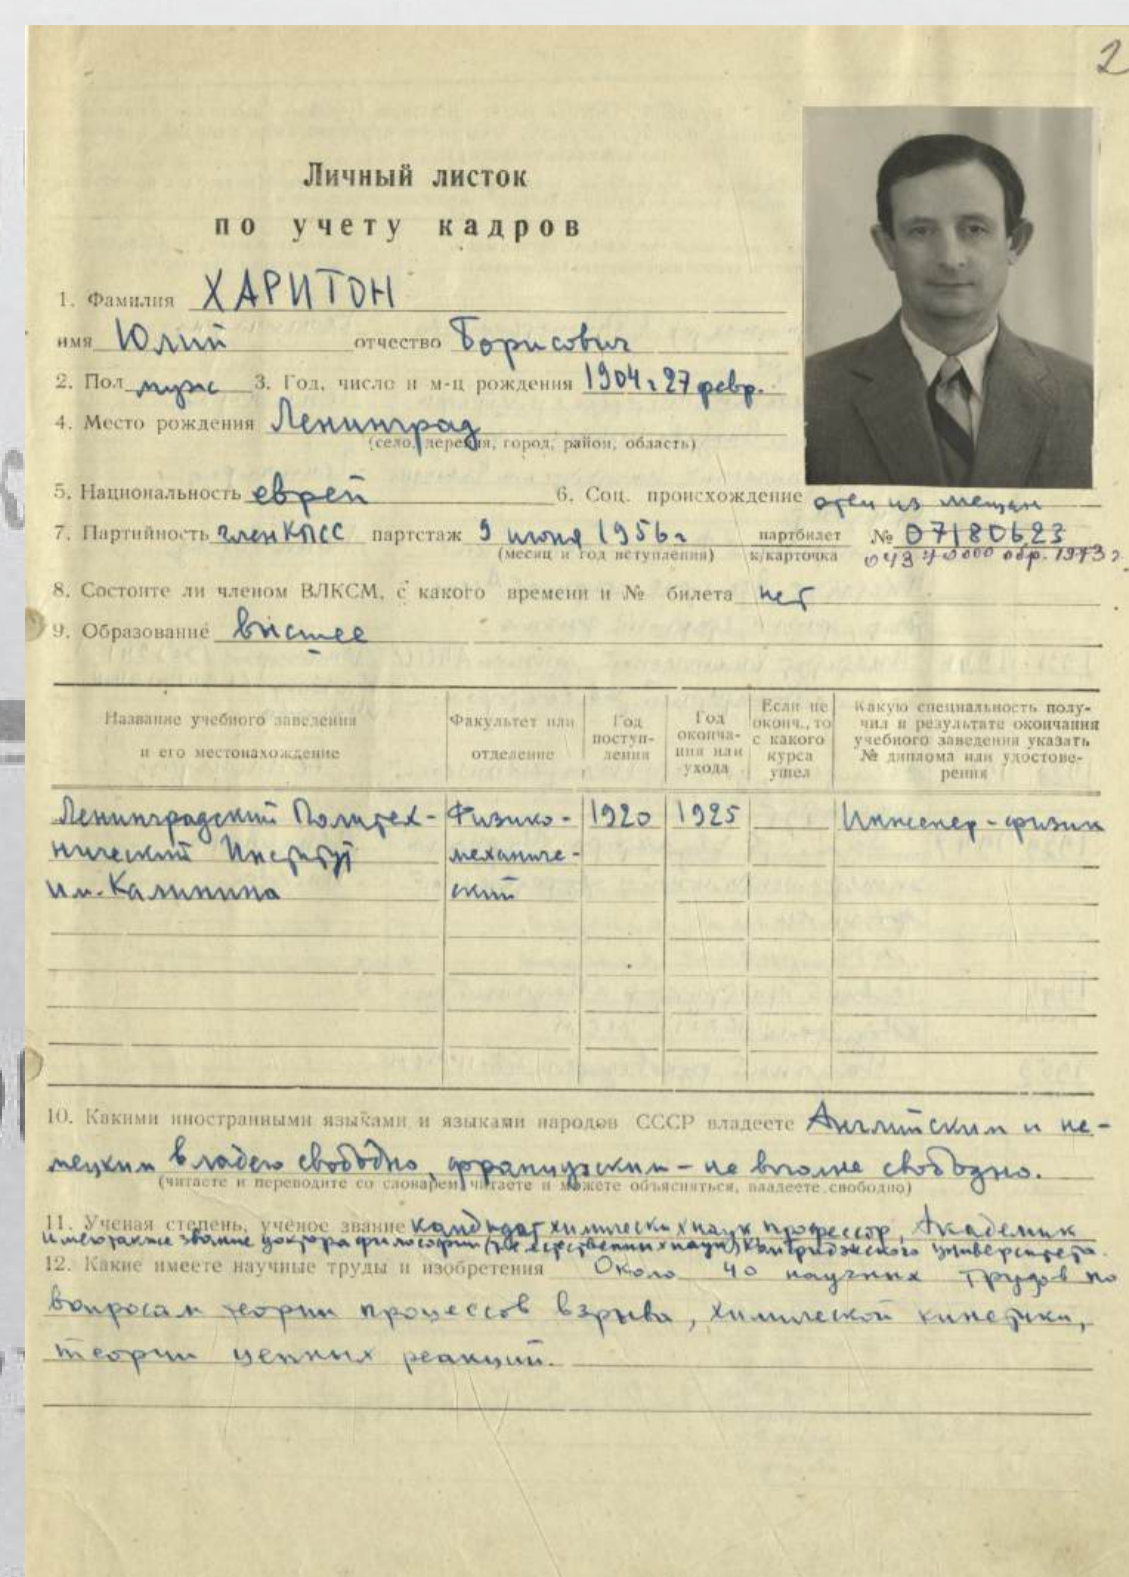 2
Личный листок
по учету кадров
1. Фамилия ХАРИТОН
имя Юлий отчество Борисович
2. Пол муж 3. Год, число и м-ц рождения 1904 г 27 февр.
4. Место рождения Ленинград
(село, деревня, город, район, область)
5. Национальность еврей 6. Соц. происхождение отец из мещан
7. Партийность член КПСС партстаж 9 июня 1956 г партбилет № 07180623
(месяц и год вступления) к/карточка обр. 1973 г.
8. Состоите ли членом ВЛКСМ, с какого времени и № билета нет
9. Образование высшее
Название учебного заведения и его местонахождение
Факультет или отделение
Год поступ-
ления
Год
оконча-
ния или
ухода
Если не
оконч., то
с какого
курса
ушел
Какую специальность полу-
чил в результате окончания
учебного заведения указать
№ диплома или удостове-
рения
Ленинградский Политех- Физико- 1920 1925 Инженер-физик
нический Институт механиче-
им. Калинина ский
10. Какими иностранными языками и языками народов СССР владеете Английским и не-
мецким владею свободно, французским – не вполне свободно.
(читаете и переводите со словарем, читаете и можете объясняться, владеете свободно)
11. Ученая степень, учёное звание кандидат химических наук профессор, Академик
Имею также звание доктора философии (т.е. естественных наук) Кембриджского Университета.
12. Какие имеете научные труды и изобретения Около 40 научных трудов по
вопросам теории процессов взрыва, химической кинетики,
теории цепных реакций.